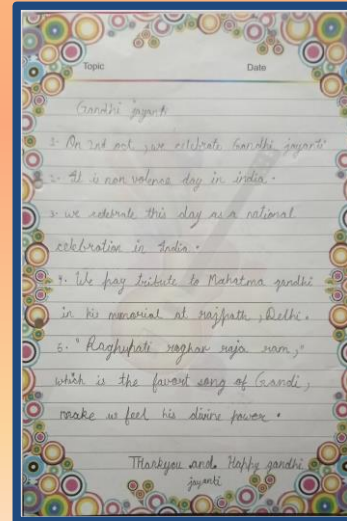 Topic Date
Gandhi jayanti
1. On 2nd oct, we celebrate Gandhi jayanti
2. It is non volence day in india.
3. we celebrate this day as a national
celebration in India.
4. We pay tribute to Mahatma gandhi
in his memorial at rajpath, Delhi.
5. "Raghupati raghav raja ram,"
which is the favort song of Gandi,
make us feel his divine power.
Thankyou and Happy gandhi
jayanti